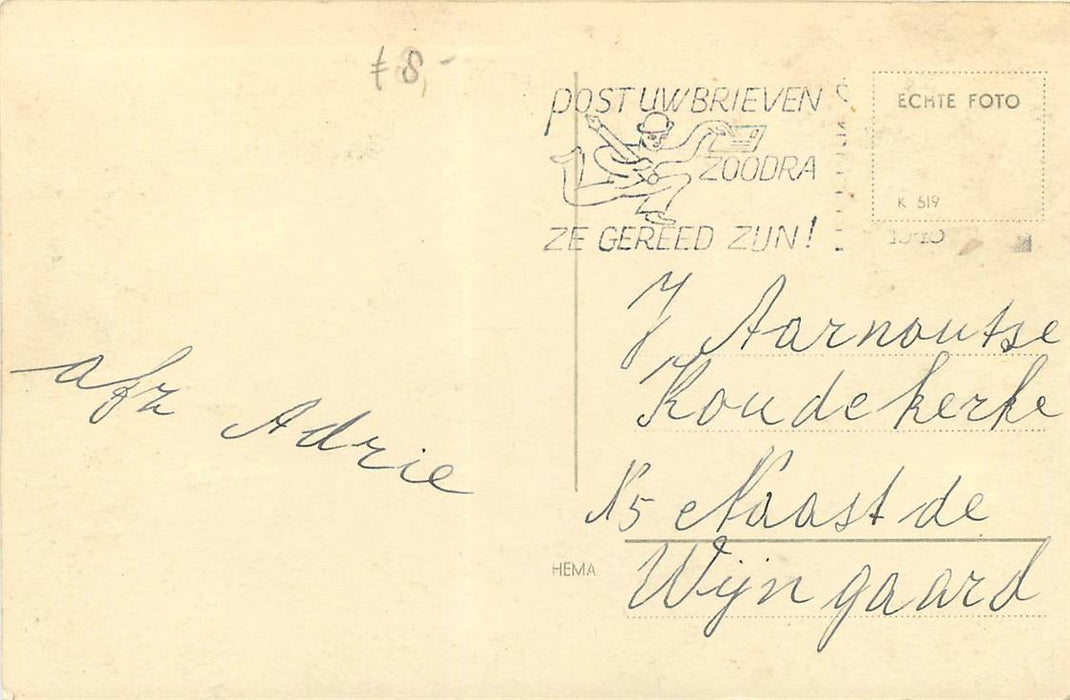 8,-
POST UW BRIEVEN
ZOODRA
ZE GEREED ZIJN!
ECHTE FOTO
K 519
J Aarnoutse
Koudekerke
N5 Naast de
Wijngaard
HEMA
afz Adrie